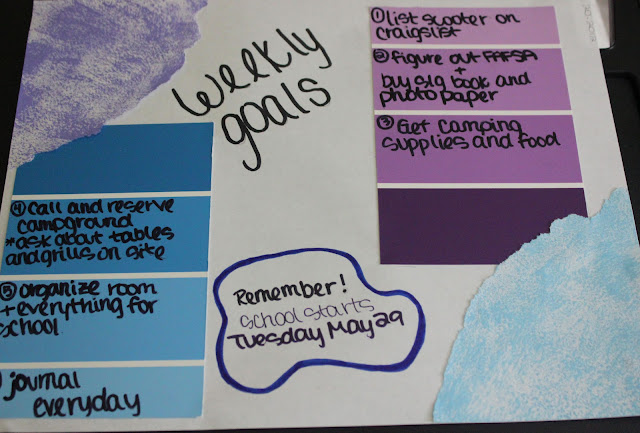 weekly
goals
① list scooter on
craigslist
② figure out FAFSA
+
buy sig book and
photo paper
③ Get camping
supplies and food
④ call and reserve
campground
*ask about tables
and grills on site
⑤ organize room
+ everything for
school
journal
everyday
Remember!
school starts
Tuesday May 29